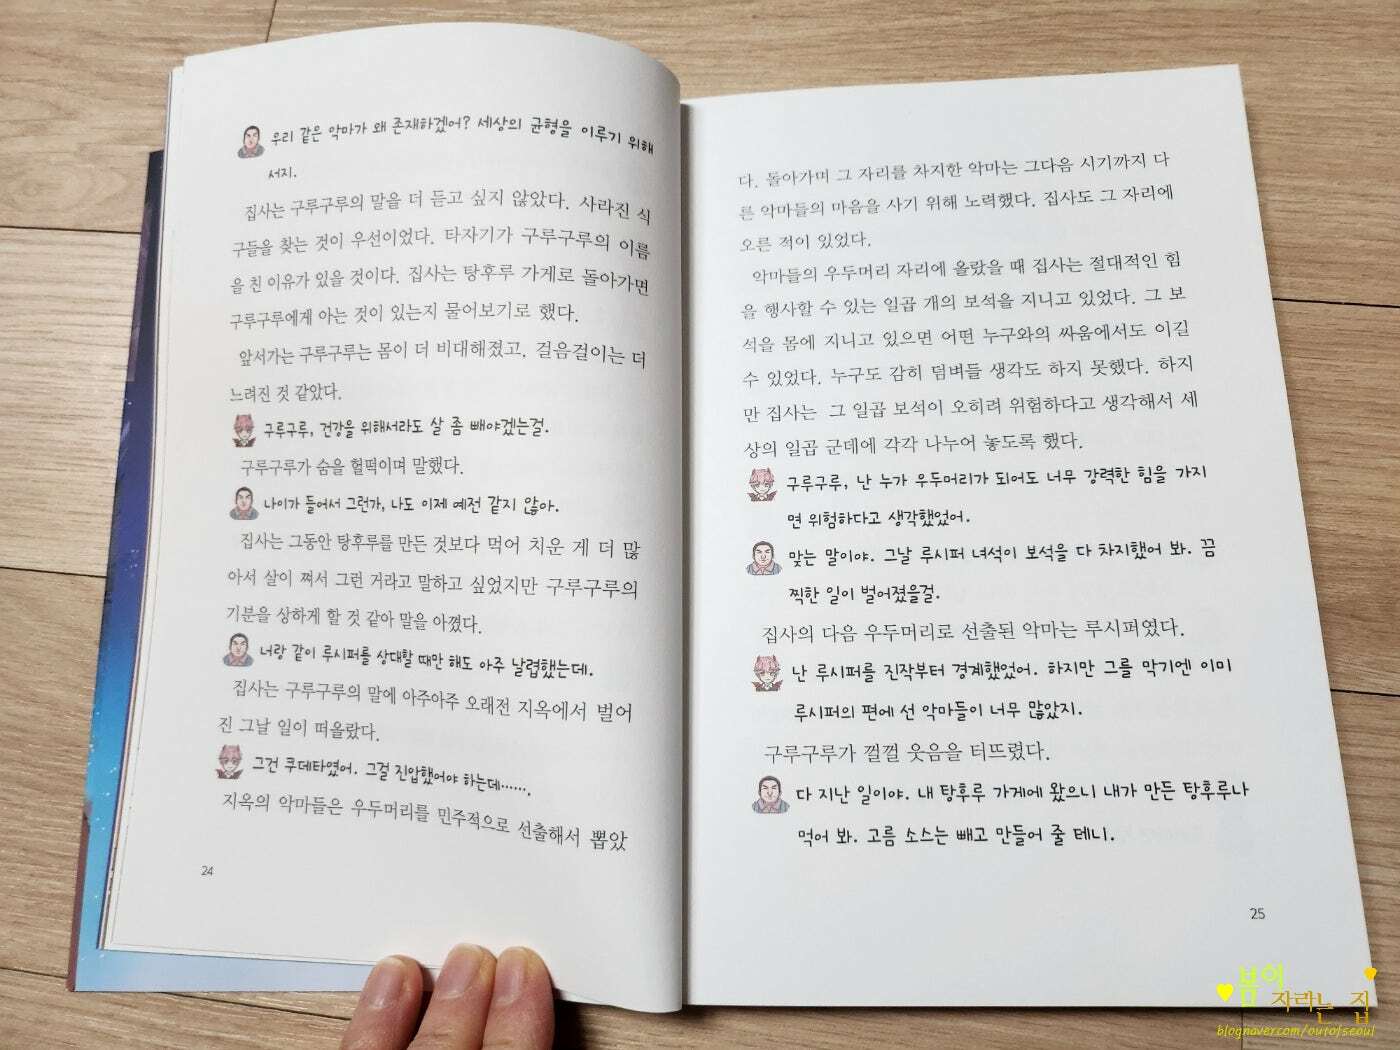 우리 같은 악마가 왜 존재하겠어? 세상의 균형을 이루기 위해
서지.
집사는 구루구루의 말을 더 듣고 싶지 않았다. 사라진 식
구들을 찾는 것이 우선이었다. 타자기가 구루구루의 이름
을 친 이유가 있을 것이다. 집사는 탕후루 가게로 돌아가면
구루구루에게 아는 것이 있는지 물어보기로 했다.
앞서가는 구루구루는 몸이 더 비대해졌고, 걸음걸이는 더
느려진 것 같았다.
구루구루, 건강을 위해서라도 살 좀 빼야겠는걸.
구루구루가 숨을 헐떡이며 말했다.
나이가 들어서 그런가, 나도 이제 예전 같지 않아.
집사는 그동안 탕후루를 만든 것보다 먹어 치운 게 더 많
아서 살이 쪄서 그런 거라고 말하고 싶었지만 구루구루의
기분을 상하게 할 것 같아 말을 아꼈다.
너랑 같이 루시퍼를 상대할 때만 해도 아주 날렵했는데.
집사는 구루구루의 말에 아주아주 오래전 지옥에서 벌어
진 그날 일이 떠올랐다.
그건 쿠데타였어. 그걸 진압했어야 하는데…….
지옥의 악마들은 우두머리를 민주적으로 선출해서 뽑았
24
다. 돌아가며 그 자리를 차지한 악마는 그다음 시기까지 다
른 악마들의 마음을 사기 위해 노력했다. 집사도 그 자리에
오른 적이 있었다.
악마들의 우두머리 자리에 올랐을 때 집사는 절대적인 힘
을 행사할 수 있는 일곱 개의 보석을 지니고 있었다. 그 보
석을 몸에 지니고 있으면 어떤 누구와의 싸움에서도 이길
수 있었다. 누구도 감히 덤벼들 생각도 하지 못했다. 하지
만 집사는 그 일곱 보석이 오히려 위험하다고 생각해서 세
상의 일곱 군데에 각각 나누어 놓도록 했다.
구루구루, 난 누가 우두머리가 되어도 너무 강력한 힘을 가지
면 위험하다고 생각했었어.
맞는 말이야. 그날 루시퍼 녀석이 보석을 다 차지했어 봐. 끔
찍한 일이 벌어졌을걸.
집사의 다음 우두머리로 선출된 악마는 루시퍼였다.
난 루시퍼를 진작부터 경계했었어. 하지만 그를 막기엔 이미
루시퍼의 편에 선 악마들이 너무 많았지.
구루구루가 껄껄 웃음을 터뜨렸다.
다 지난 일이야. 내 탕후루 가게에 왔으니 내가 만든 탕후루나
먹어 봐. 고름 소스는 빼고 만들어 줄 테니.
25
봄이
자라는 집
blog.naver.com/outofseoul